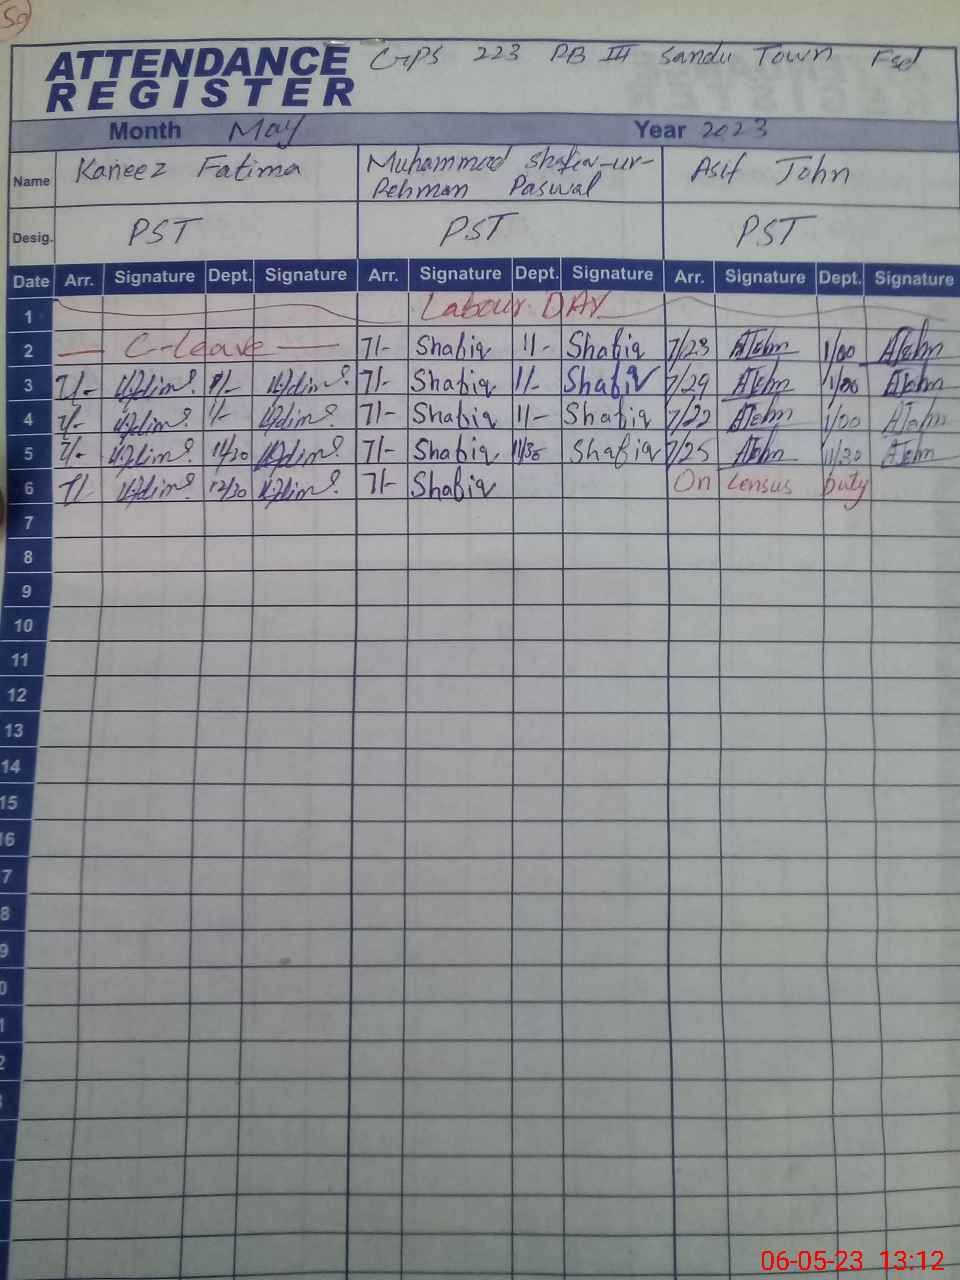 50
ATTENDANCE REGISTER GPS 223 RB III Sandu Town Fsd
Month May Year 2023
Name Kaneez Fatima Muhammad Shafiq-ur-Rehman Asif John
Desig. PST PST PST
Date Arr. Signature Dept. Signature Arr. Signature Dept. Signature Arr. Signature Dept. Signature
1 Labour DAY
2 C-Leave 7/- Shafiq 1/- Shafiq 7/23 AJohn 1/00 AJohn
3 7/- 1/- 7/- Shafiq 1/- Shafiq 7/29 AJohn 1/00 AJohn
4 7/- 1/- 7/- Shafiq 1/- Shafiq 7/22 AJohn 1/00 AJohn
5 7/- 11/30 7/- Shafiq 11/30 Shafiq 7/25 AJohn 11/30 AJohn
6 7/- 12/30 7/- Shafiq On Census Duty
7
8
9
10
11
12
13
14
15
16
7
8
9
0
1
2
06-05-23 13:12